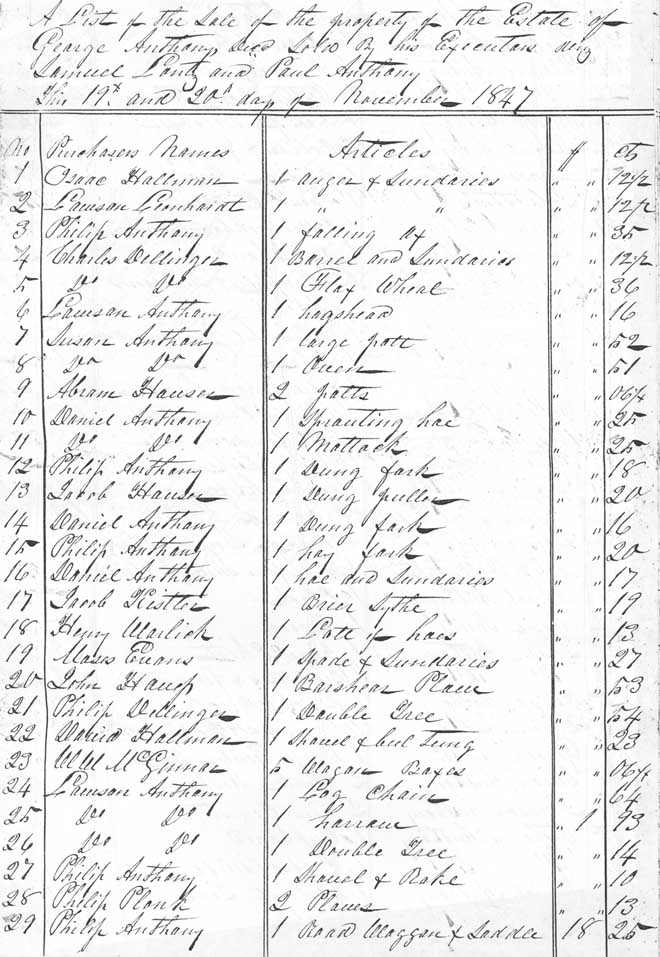 A List of the Sale of the property of the Estate of
George Anthony Decd Sold By his Executors being
Samuel Lantz and Paul Anthony
This 19th and 20th day of November 1847
No Purchasers Names Articles $ cts
1 Isaac Hallman 1 auger & Sundaries " " 12 1/2
2 Lawson Leonhardt 1 " " " " 12 1/2
3 Philip Anthony 1 falling ax " " 35
4 Charles Dellinger 1 Barrel and Sundaries " " 12 1/2
5 Do Do 1 Flax Wheal " " 36
6 Lawson Anthony 1 hogshead " " 16
7 Susan Anthony 1 large pott " " 52
8 Do Do 1 Oven " " 51
9 Abram Hauser 2 potts " " 06 1/4
10 Daniel Anthony 1 Sprouting hoe " " 25
11 Do Do 1 Mattock " " 25
12 Philip Anthony 1 Dung fork " " 18
13 Jacob Hauser 1 Dung puller " " 20
14 Daniel Anthony 1 Dung fork " " 16
15 Philip Anthony 1 hay fork " " 20
16 Daniel Anthony 1 hoe and Sundaries " " 17
17 Jacob Kistler 1 Brier Sythe " " 19
18 Henry Warlick 1 Lott of hoes " " 13
19 Moses Evans 1 Spade & Sundaries " " 27
20 John Hauss 1 Barshear Plow " " 53
21 Philip Dellinger 1 Double Tree " " 54
22 David Hallman 1 Shovel & bul Tung " " 23
23 WW McGinnas 5 Wagon Boxes " " 06 1/4
24 Lawson Anthony 1 Log Chain " " 64
25 Do Do 1 harrow " 1 93
26 Do Do 1 Double Tree " " 14
27 Philip Anthony 1 Shovel & Rake " " 10
28 Philip Plonk 2 Plows " " 13
29 Philip Anthony 1 Road Waggon & Saddle 18 25